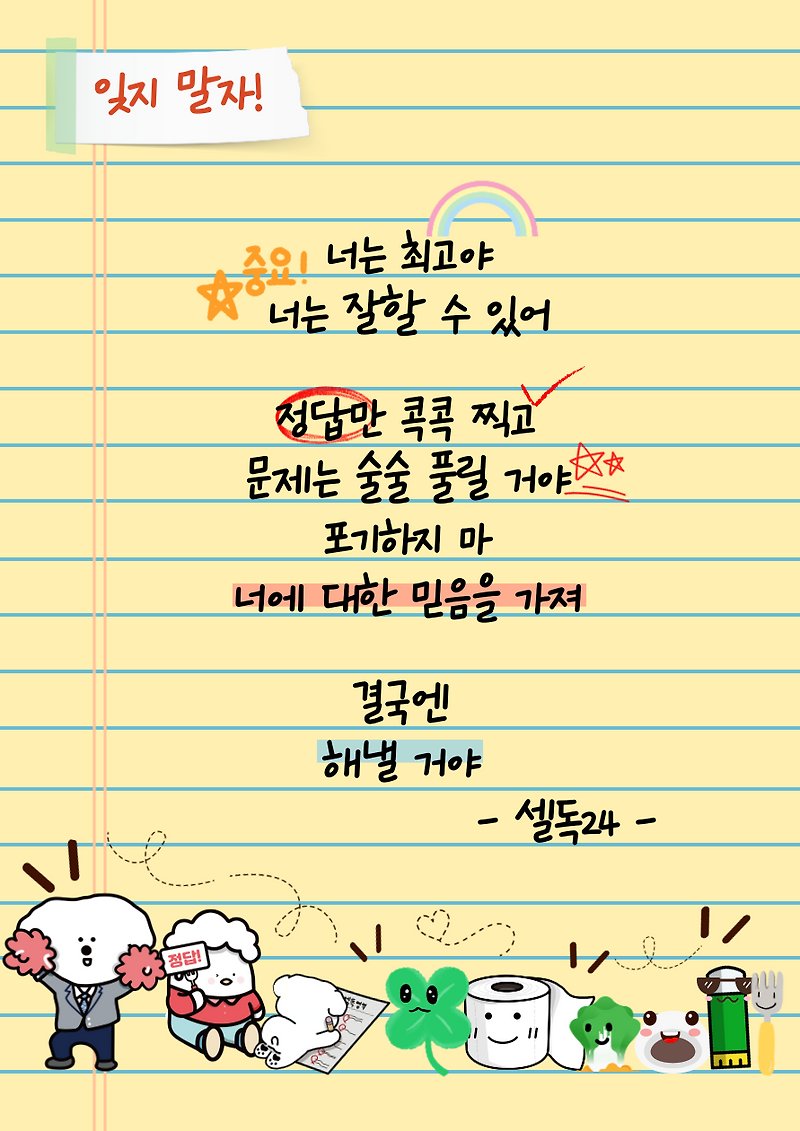 잊지 말자!
중요! 너는 최고야
너는 잘할 수 있어
정답만 콕콕 찍고
문제는 술술 풀릴 거야
포기하지 마
너에 대한 믿음을 가져
결국엔
해낼 거야
- 셀독24 -
정답!